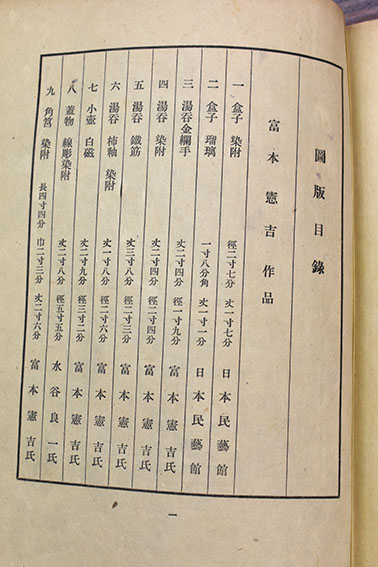 圖版目錄
富本憲吉作品
一 盒子 染附 徑二寸七分 丈一寸七分 日本民藝館
二 盒子 瑠璃 一寸八分角 丈一寸一分 日本民藝館
三 湯呑金襴手 丈二寸四分 徑一寸九分 富本憲吉氏
四 湯呑 染附 丈二寸四分 徑二寸四分 富本憲吉氏
五 湯呑 鐵筋 丈三寸八分 徑二寸三分 富本憲吉氏
六 湯呑 柿釉 染附 丈一寸八分 徑二寸六分 富本憲吉氏
七 小壺 白磁 丈二寸九分 徑三寸二分 富本憲吉氏
八 蓋物 線彫染附 丈二寸八分 徑五寸五分 水谷良一氏
九 角筥 染附 長四寸四分 巾二寸三分 丈二寸六分 富本憲吉氏
一